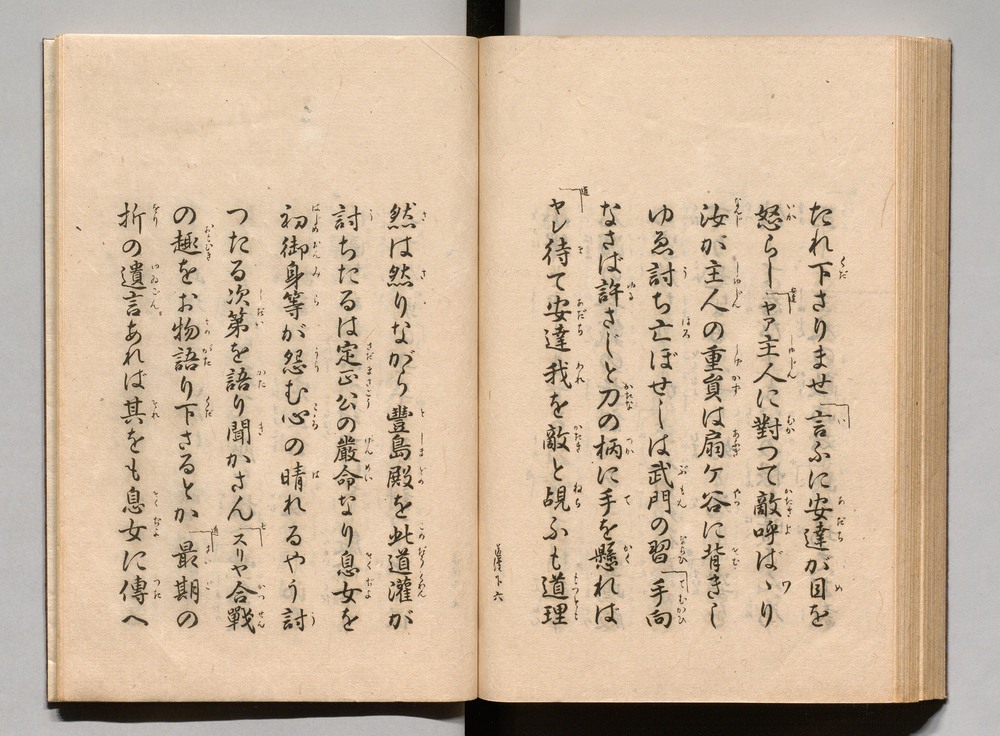 たれ下さりませ 言ふに安達が目を
怒らし ヤア主人に對つて敵呼ばゝり
汝が主人の重員は扇ケ谷に背きし
ゆゑ討ち亡ぼせしは武門の習 手向
なさば許さじと刀の柄に手を懸れば
ヤレ待て安達我を敵と覘ふも道理
然は然りながら豐島殿を此道灌が
討ちたるは定正公の嚴命なり息女を
初御身等が怨む心の晴れるやう討
つたる次第を語り聞かさん スリや合戰
の趣をお物語り下さるとか 最期の
折の遺言あれば其をも息女に傳へ
道灌下 六